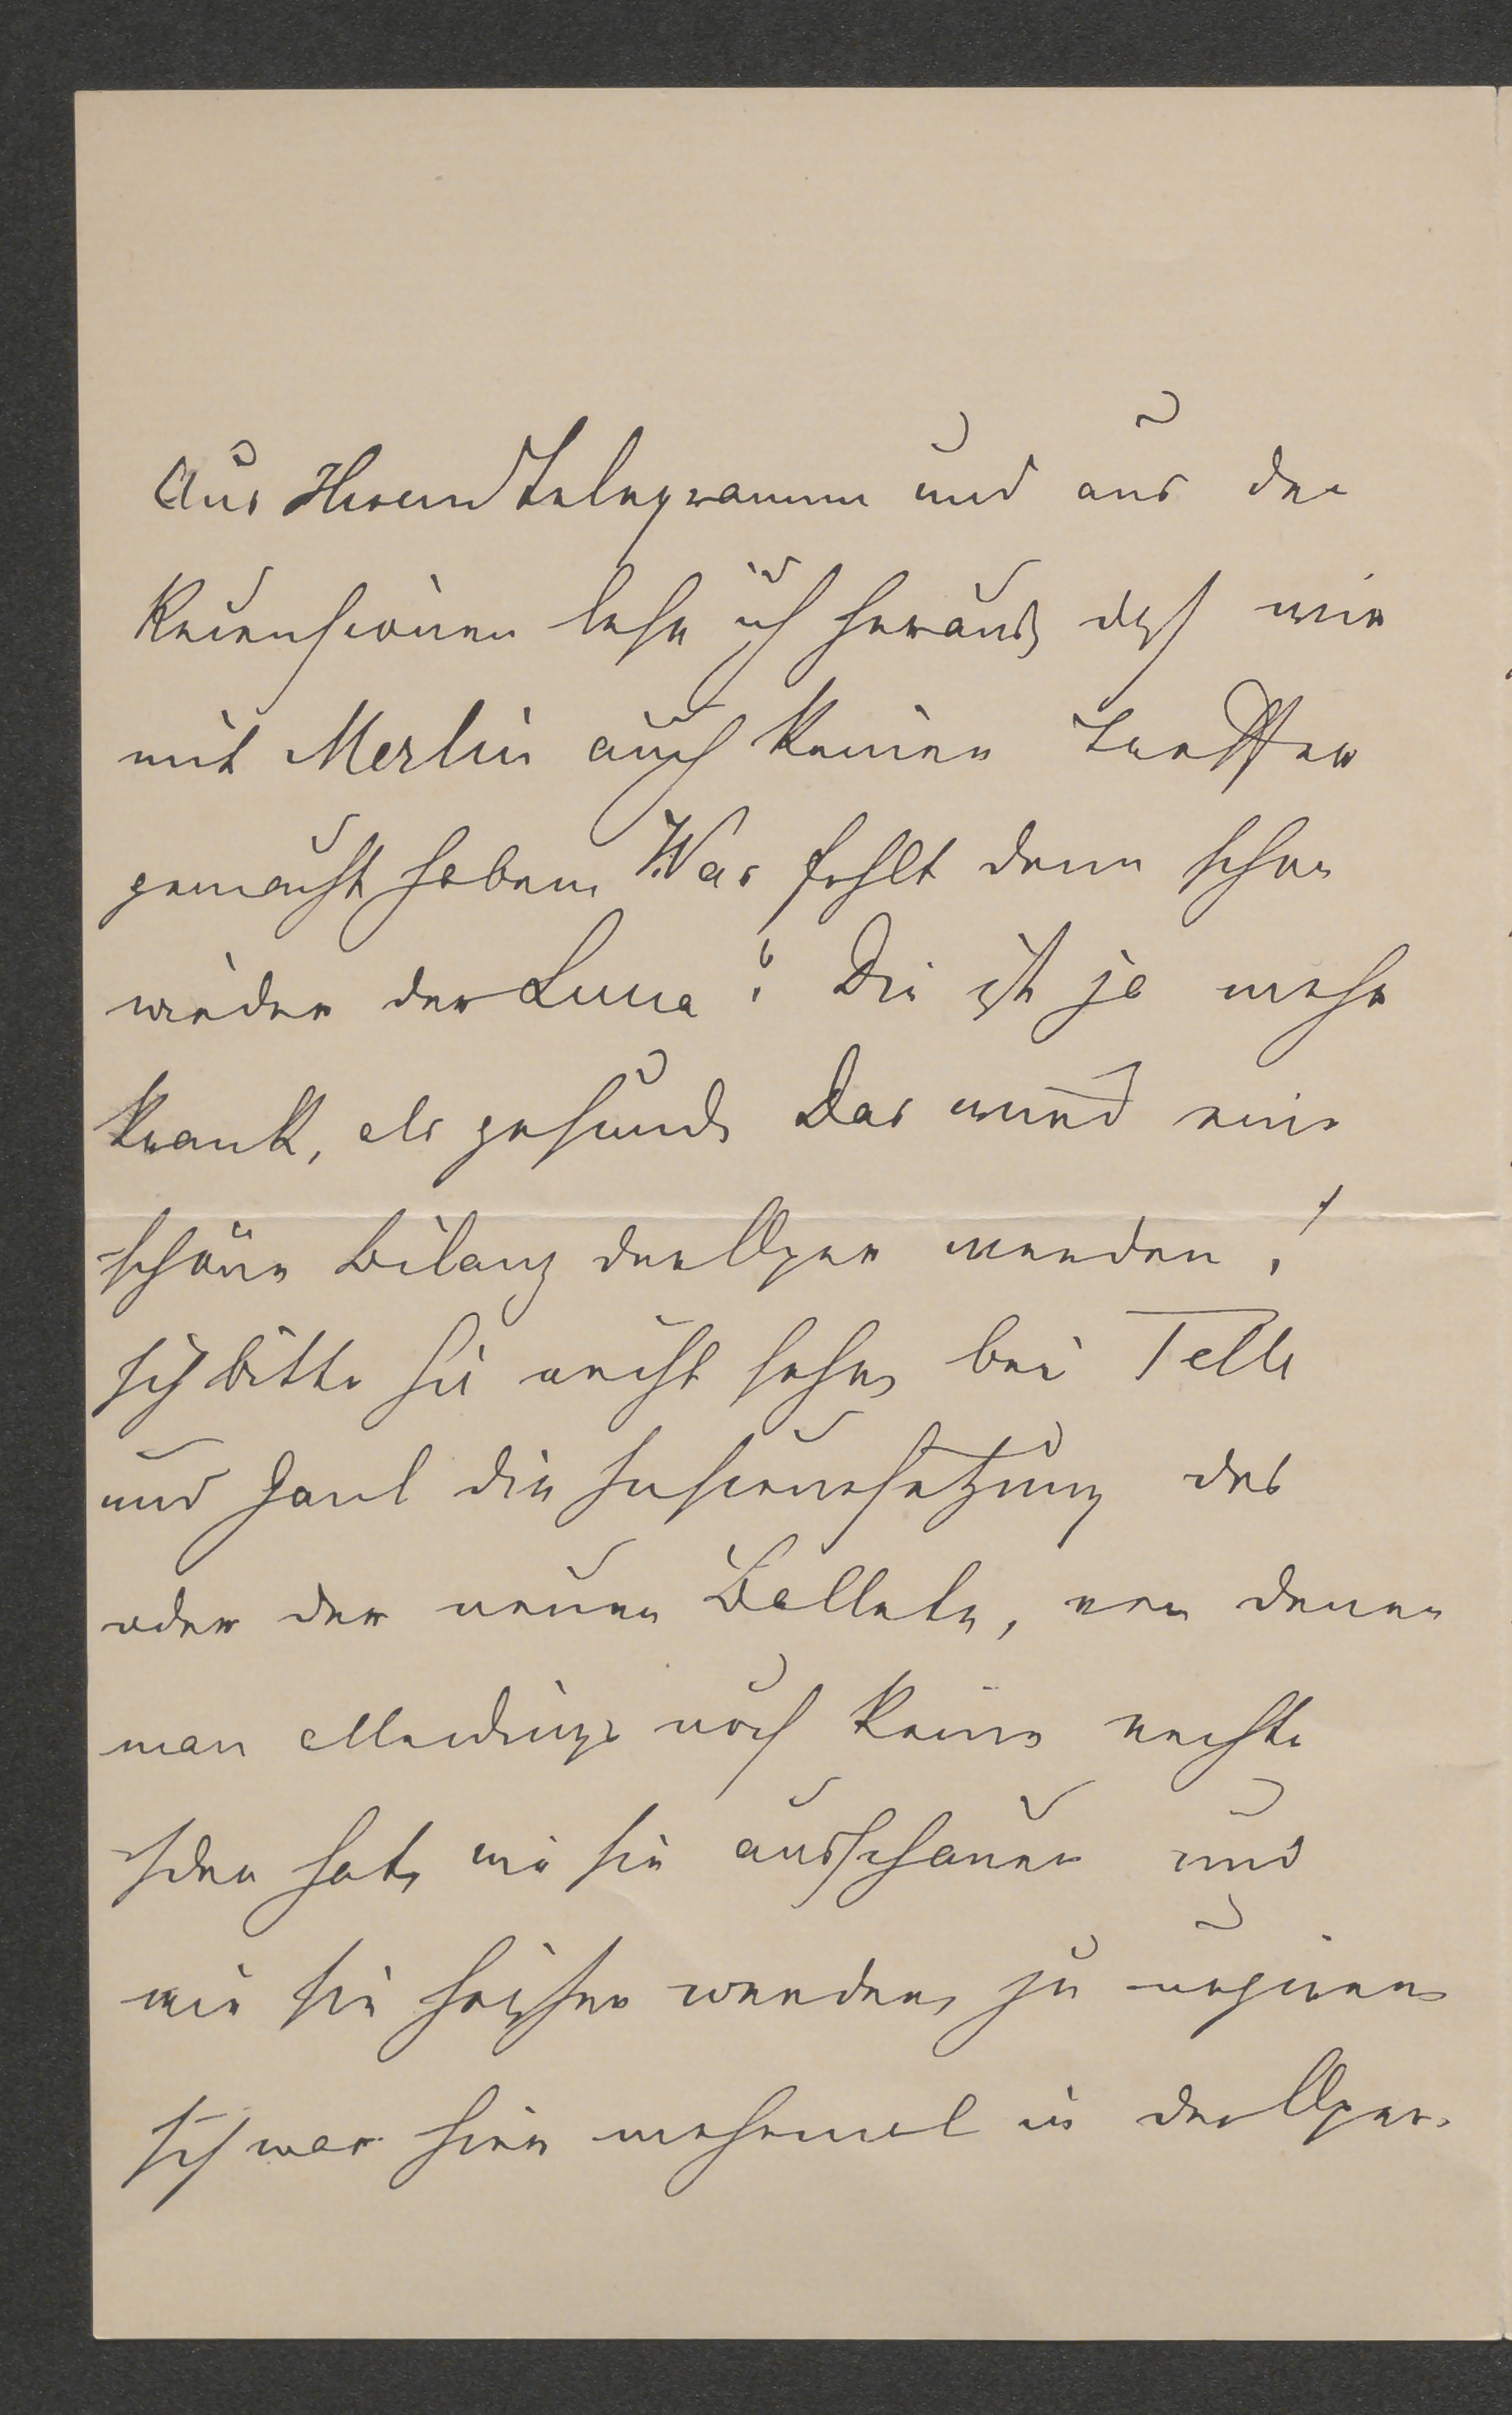 Aus Ihrem Telegramm und aus den
Recensionen lese ich heraus, daß wir
mit Merlin auch keinen Treffer
gemacht haben. Was fehlt denn schon
wieder der Lucca? Die ist ja mehr
krank, als gesund. Das wird eine
schöne Bilanz der Oper werden!
Ich bitte Sie recht sehr, bei Telle
und Gaul die Inscenesetzung des
oder der neuen Ballete, von denen
man allerdings noch keine rechte
Idee hat, wie sie ausschauen und
wie sie heißen werden, zu urgiren.
Ich war hier mehrmal in der Oper.